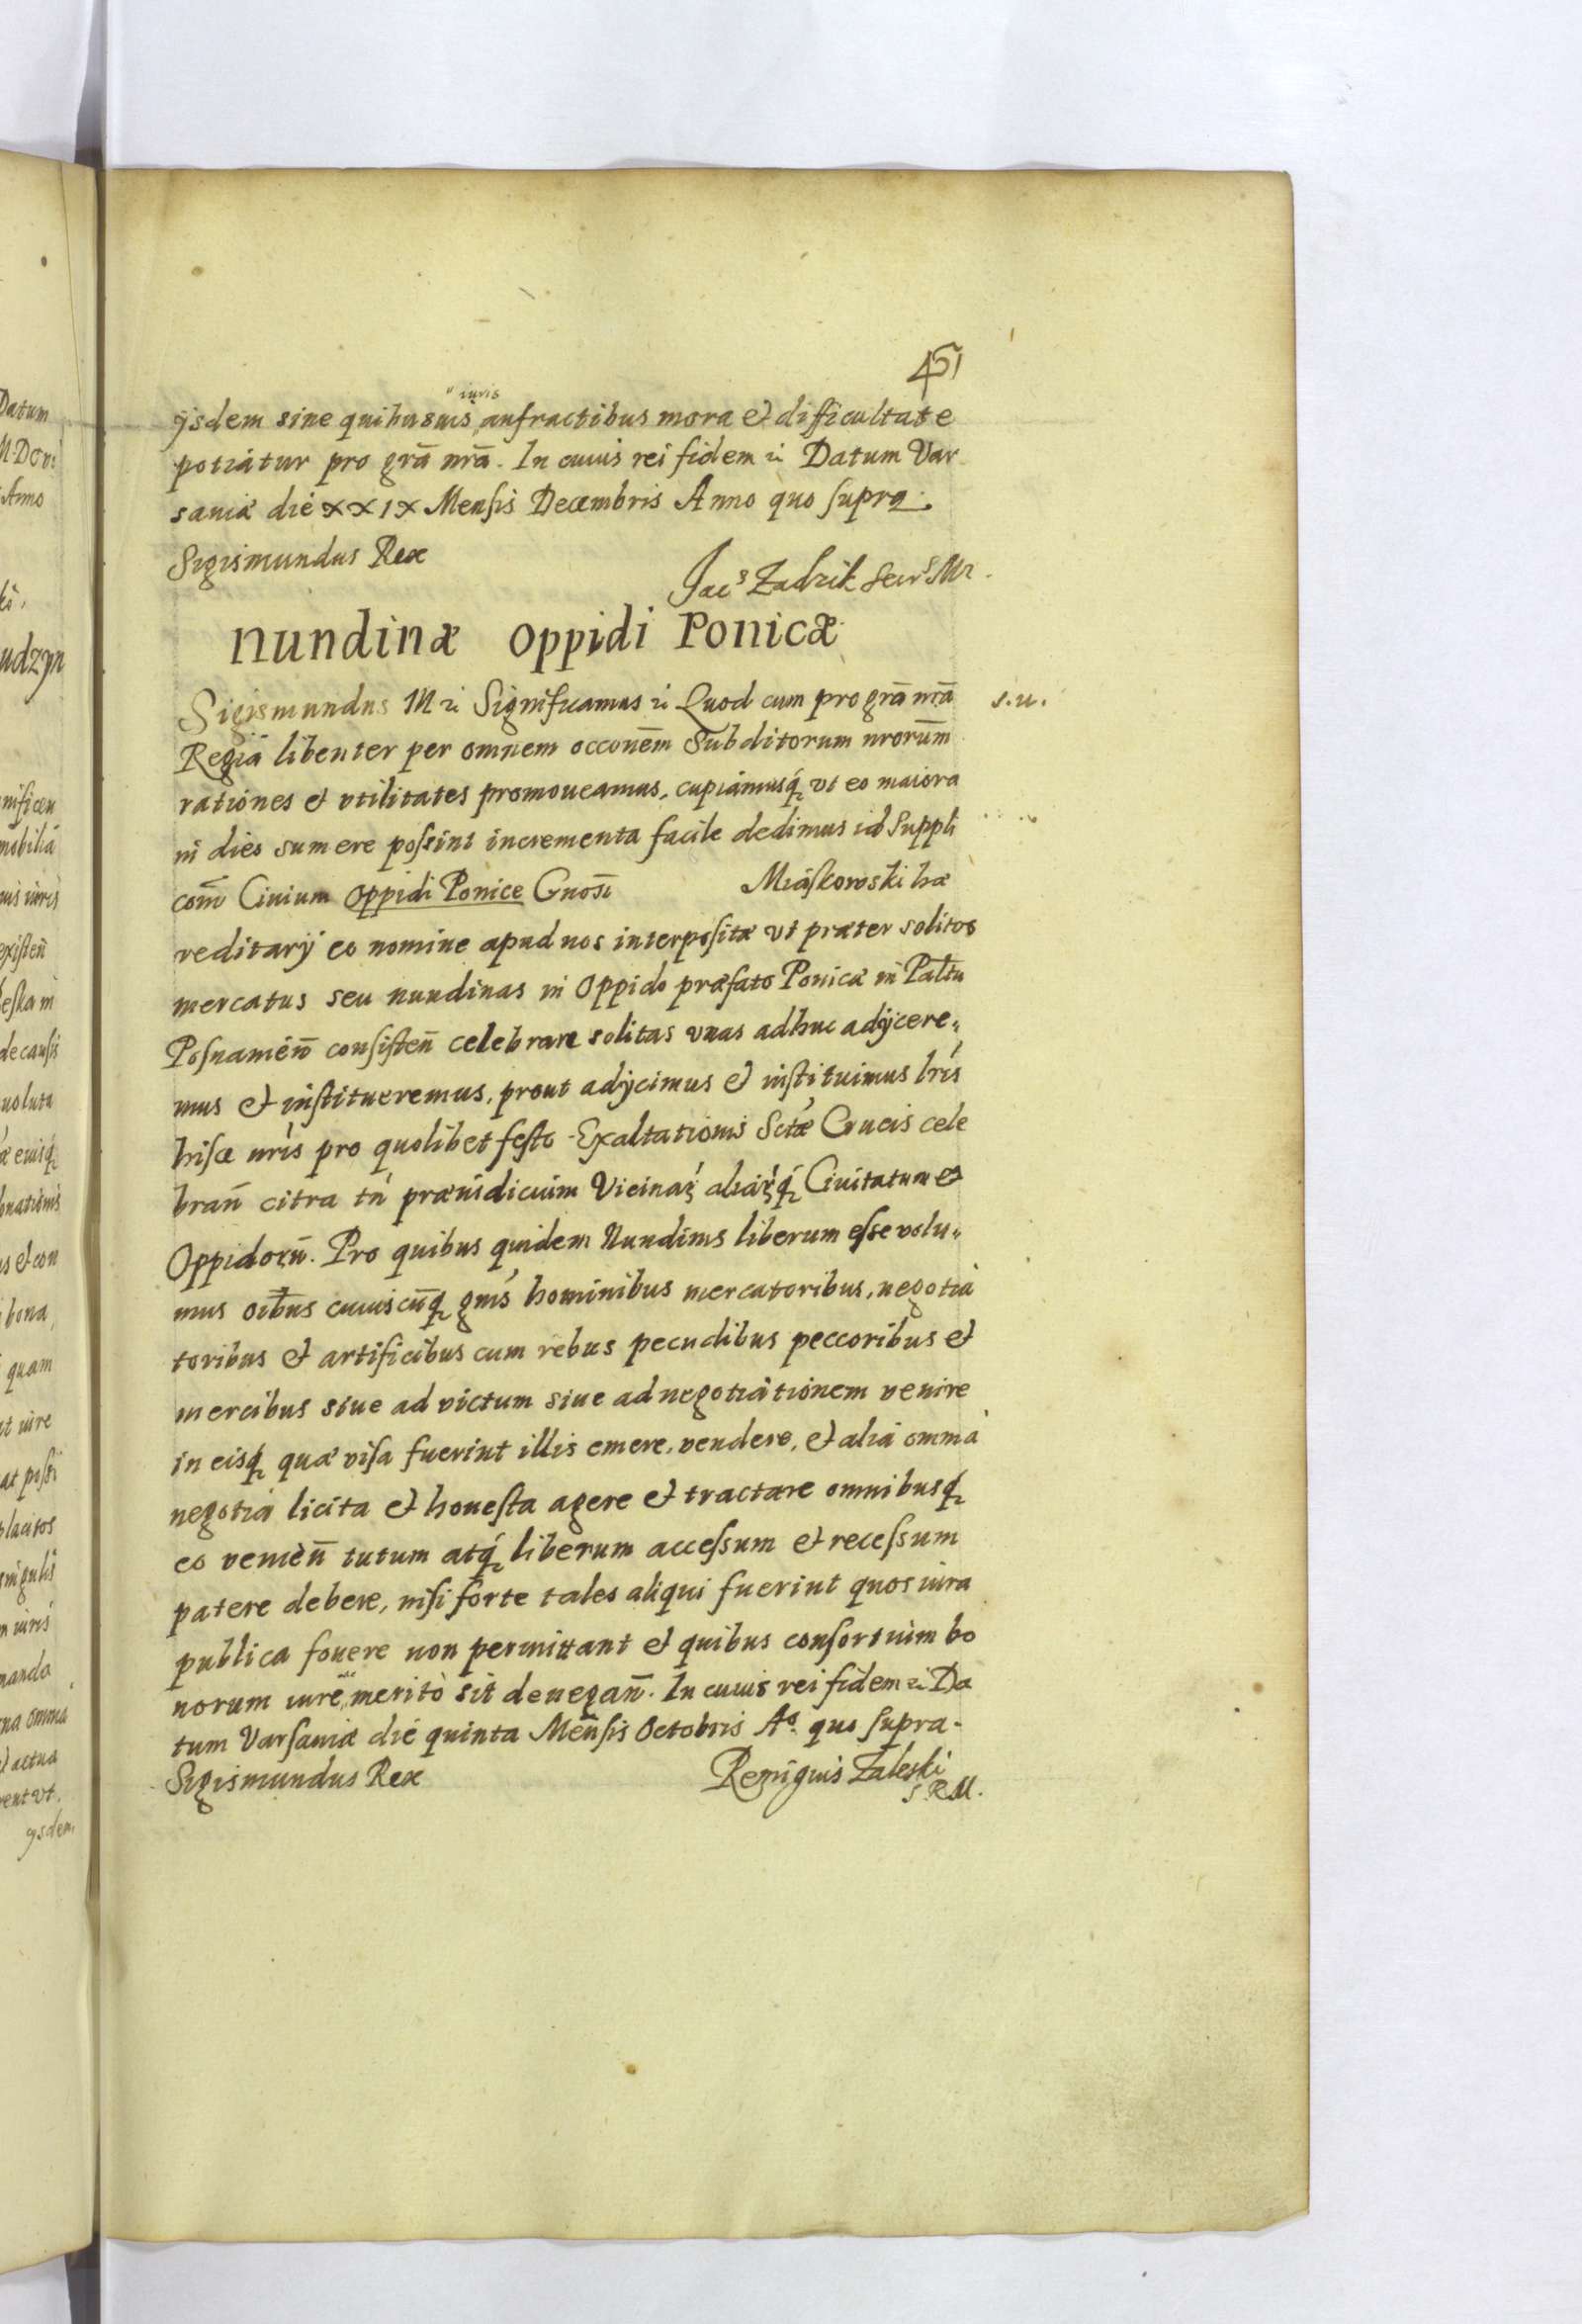 451
iuris
ijsdem sine quibusuis anfractibus mora et difficultate
potiatur pro grā nrā. In cuius rei fidem &c Datum Var
sauiæ die XXIX Mensis Decembris Anno quo supra.
Sigismundus Rex
Jacs Zadzik Secrs Mr.
Nundinæ Oppidi Ponicæ
Sigismundus III &c Significamus &c Quod cum pro grā nrā
s. u.
Regia libenter per omnem occonēm Subditorum nrorūm
rationes et vtilitates promoueamus, cupiamusq́ vt eo maiora
in dies sumere possint incrementa facile dedimus id Suppli
com̄ Ciuium Oppidi Ponice Gnosi Miaskowski hæ
reditarÿ eo nomine apud nos interpositæ vt præter solitos
mercatus seu nundinas in Oppido præfato Ponicæ in Paltu
Posnamien̄ consisten̄ celebrare solitas vnas adhuc adÿcere„
mus et institueremus, prout adÿcimus et instituimus lrís
hisce nrís pro quolibet festo Exaltationis Sctæ Crucis cele
bran̄ citra tn̄ præiudicium Vicinaꝝ aliaꝝq́ Ciuitatum et
Oppidorū. Pro quibus quidem Nundinis liberum esse volu„
mus oibus cuiuscūq́ gnis hominibus mercatoribus, negotia
toribus et artificibus cum rebus pecudibus peccoribus et
mercibus siue ad victum siue ad negotiationem venire
in eisq́ quæ visa fuerint illis emere, vendere, et alia omnia
negotia licita et honesta agere et tractare omnibusq́
eo venien̄ tutum atq́ liberum accessum et recessum
patere debere, nisi forte tales aliqui fuerint quos iura
publica fouere non permittant et quibus consortium bo
norum iure meritò sit denegan̄. In cuius rei fidem &c Da
tum Varsauiæ die quinta Mensis Octobris Ao. quo supra.
Sigismundus Rex
Remiguis Zaleski
S. R. M.